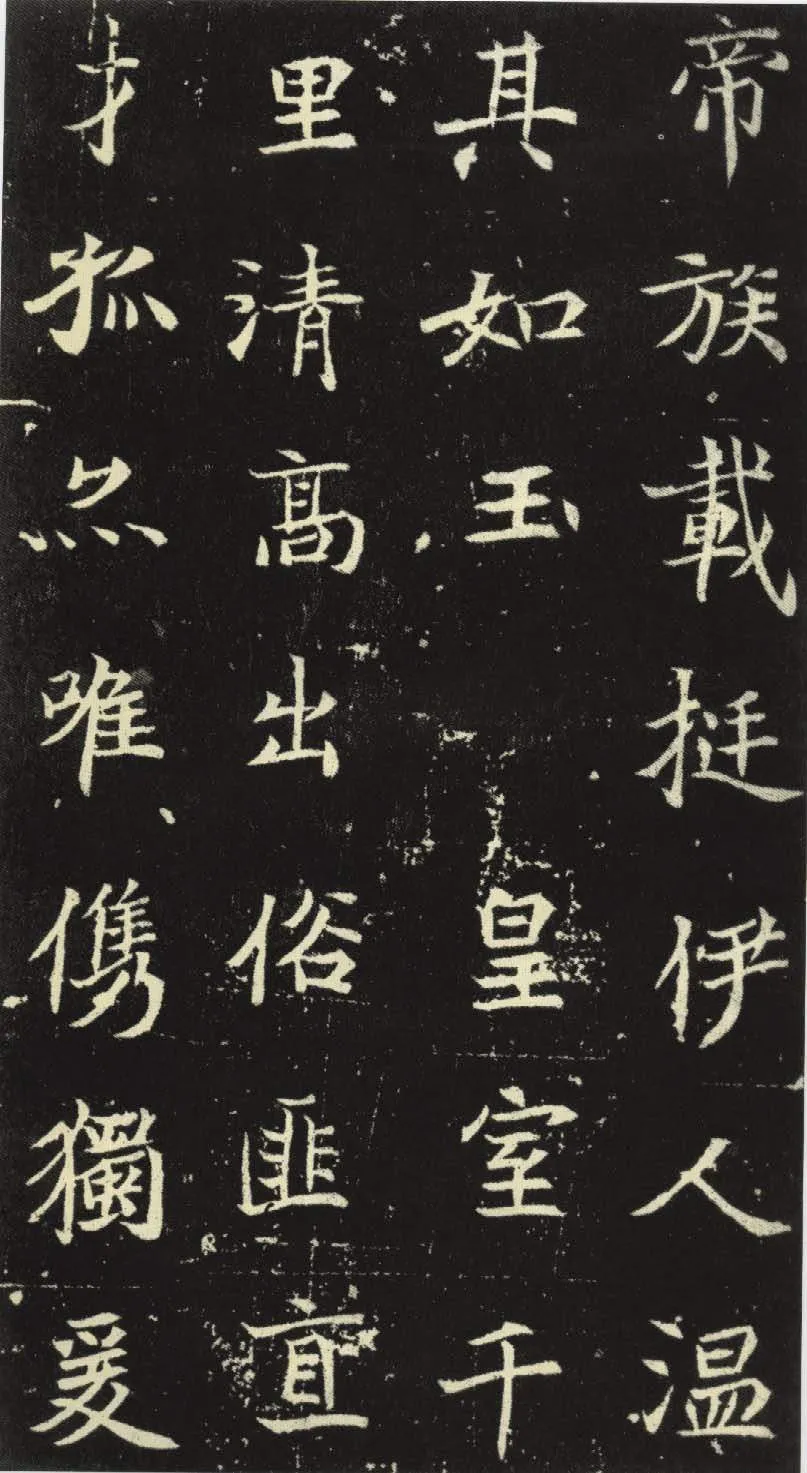 帝族載挺伊人温
其如玉　皇室千
里清高出俗匪直
才孤然唯儁獨爰